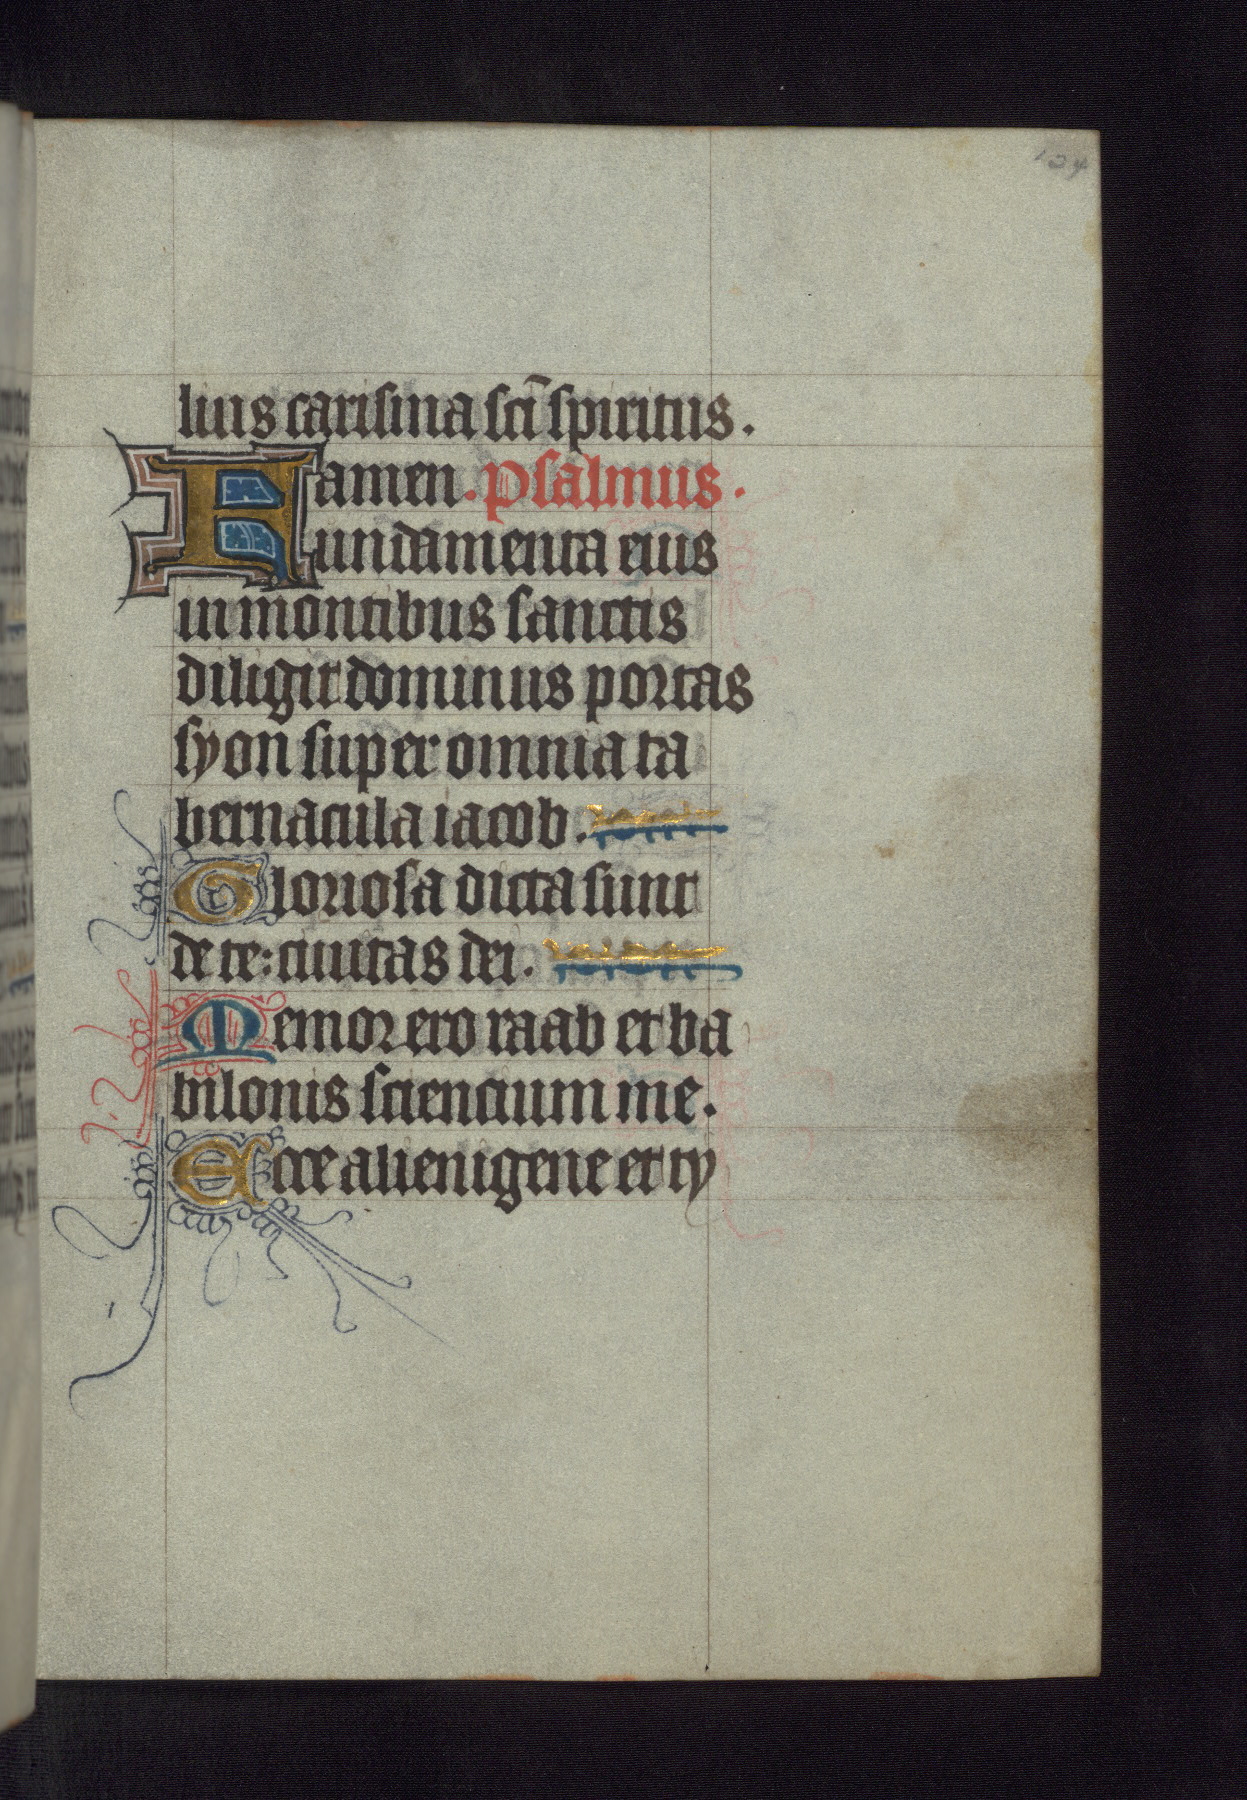 lius carisma scī spiritus.
amen. Psalmus.
Fundamenta eius
in montibus sanctis
diligit dominus portas
syon super omnia ta
bernacula iacob.
Gloriosa dicta sunt
de te: ciuitas dei.
Memor ero raab et ba
bilonis sciencium me.
Ecce alienigene et ty